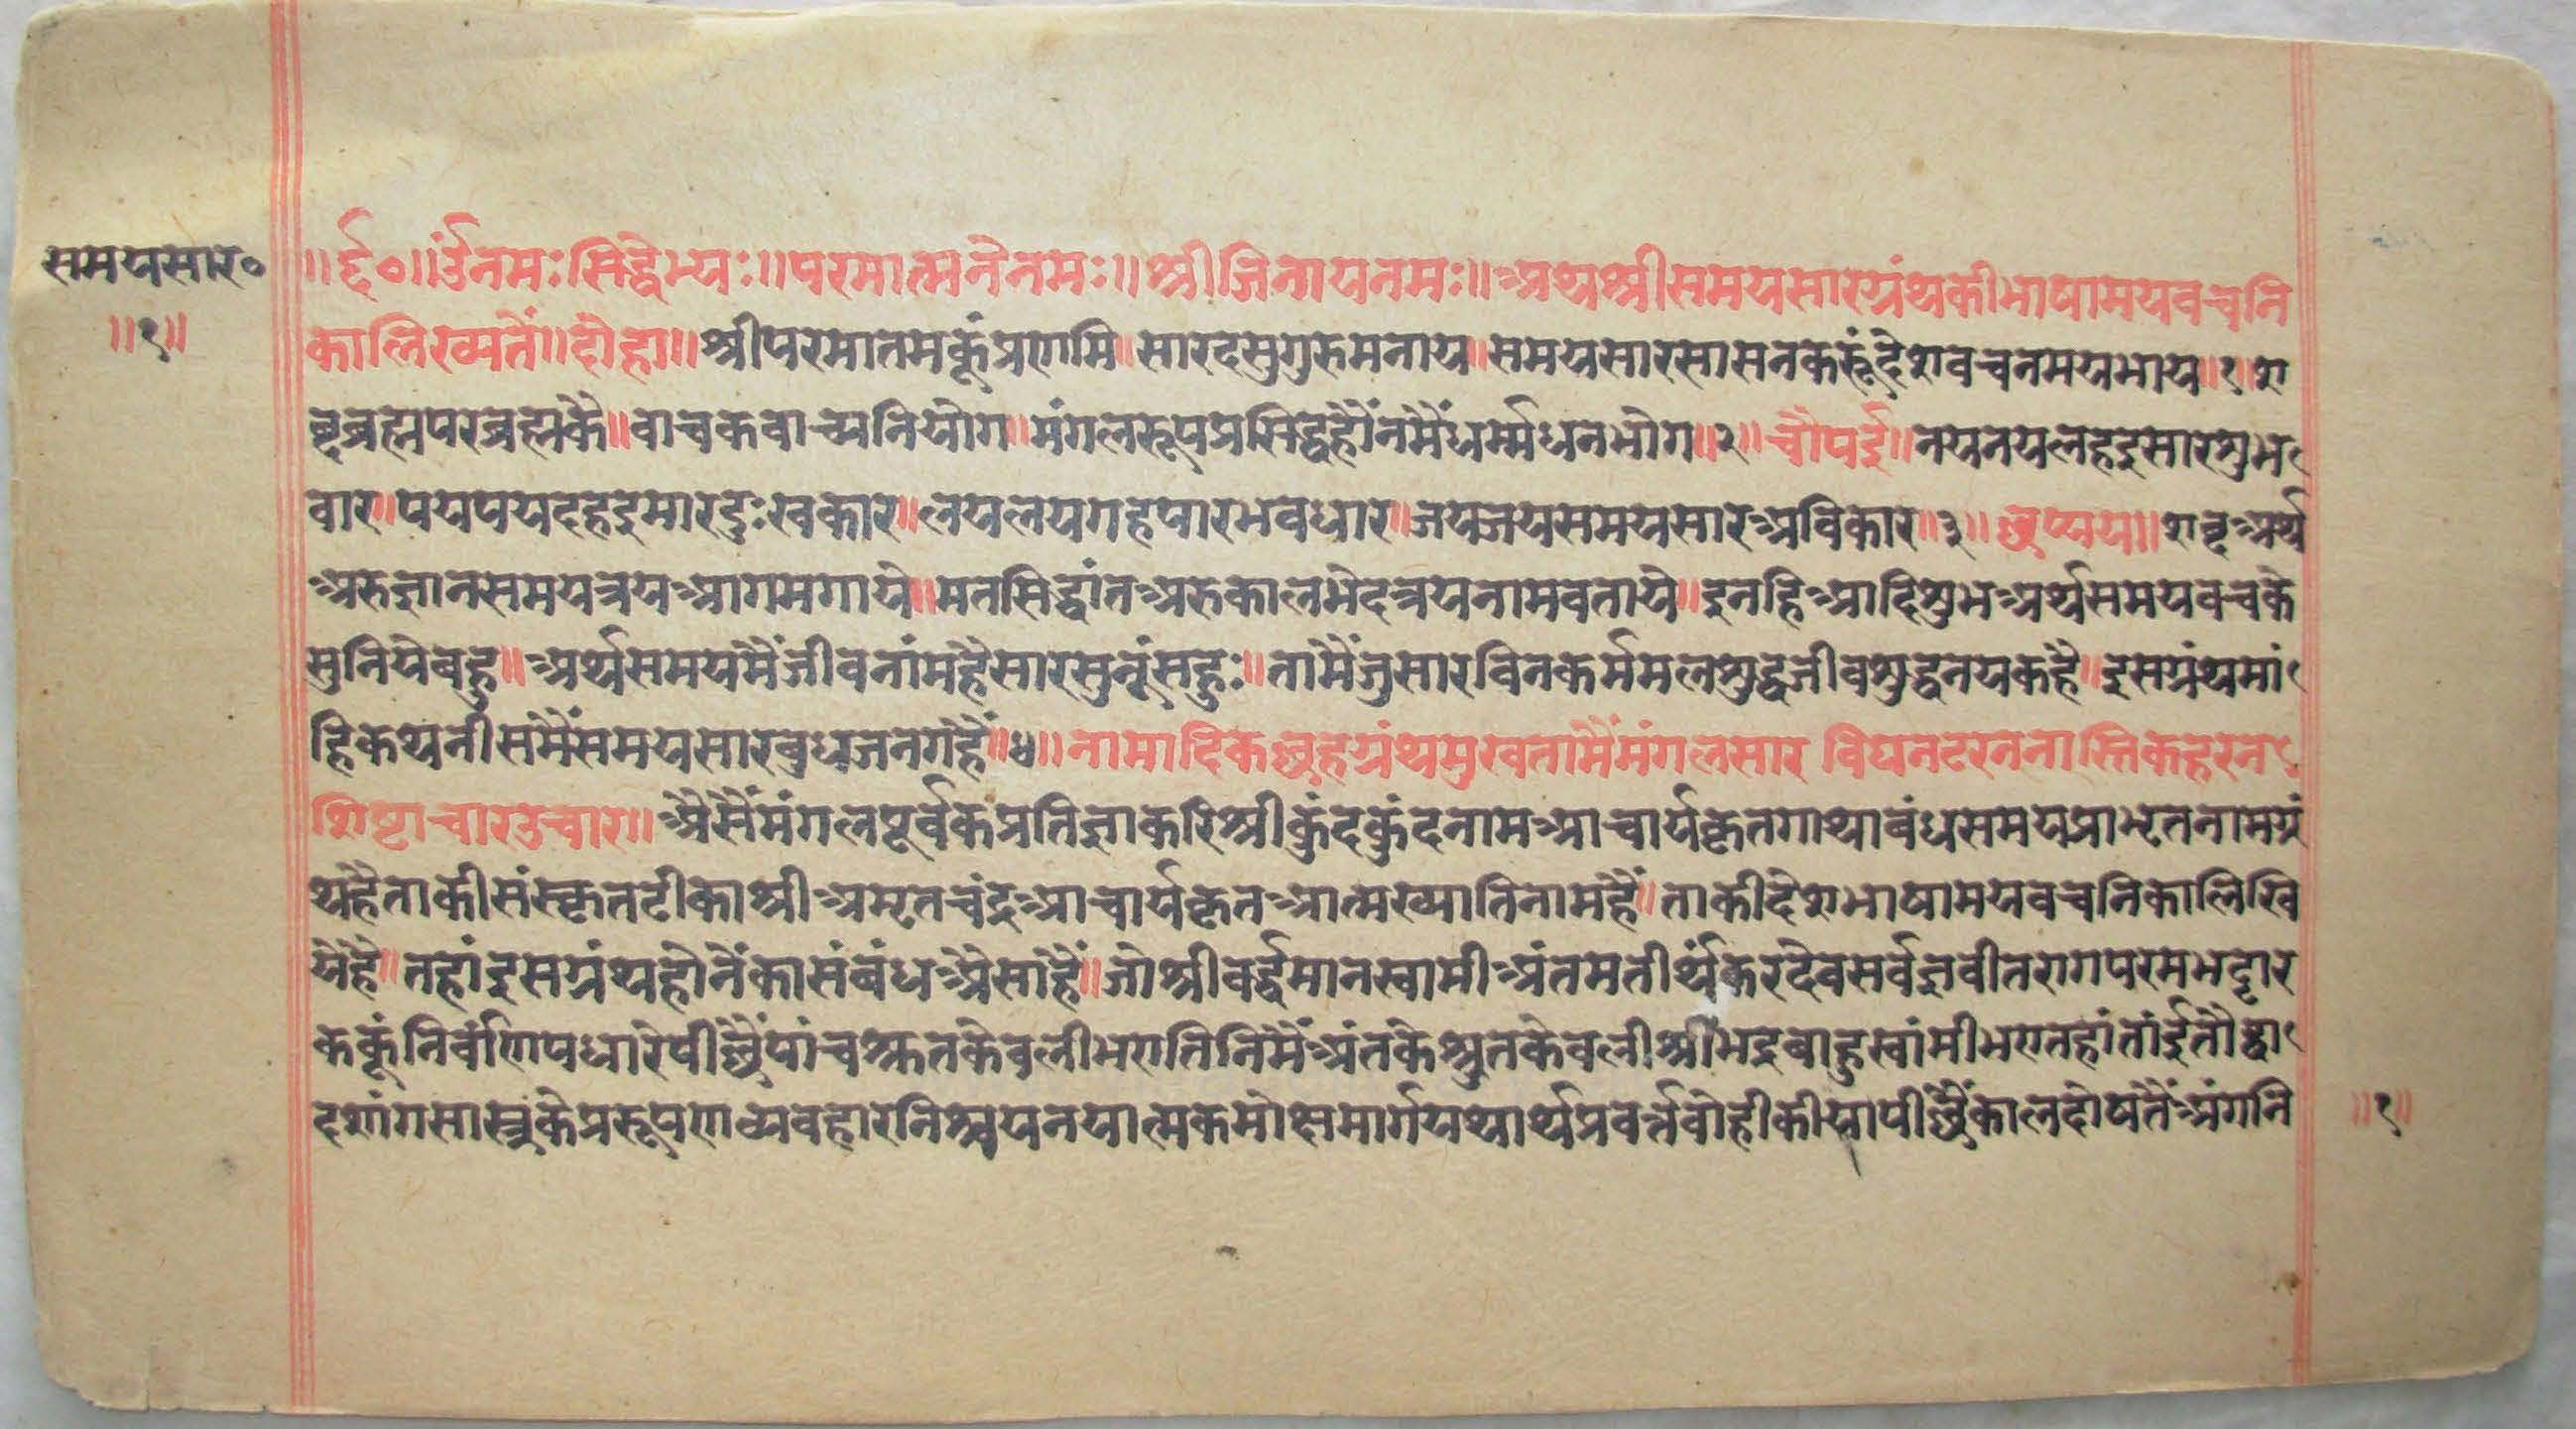 समयसार०
॥१॥
॥र्द्द०॥ॐनमःसिद्धेभ्यः॥परमात्मनेनमः॥श्रीजिनायनमः॥अथश्रीसमयसारग्रंथकीभाषामयवचनि
कालिख्यते॥दोहा॥श्रीपरमातमकूंप्रणमि॥सारदसुगुरुमनाय॥समयसारसासनकरूंदेशवचनमयभाय॥१॥श
ब्दब्रह्मपरब्रह्मकै॥वाचकवाच्यनियोग॥मंगलरूपप्रसिद्धहौंनमैंधर्म्मधनभोग॥२॥चौपई॥नयनयलहइसारशुभ
वार॥पयपयदहइमारदुःखकार॥लयलयगहपारभवधार॥जयजयसमयसारअविकार॥३॥छप्पय॥शब्दअर्थ
अरुज्ञानसमयत्रयआगमगाये॥मतसिद्धांतअरुकालभेदत्रयनामवताये॥इनहिआदिशुभअर्थसमयवचके
सुनियेबहु॥अर्थसमयमैंजीवनांमहैसारसुनूंसहुः॥तांमैंजुसारविनकर्ममलशुद्धजीवशुद्धनयकहै॥इसग्रंथमां
हिकथनीसंमैंसमयसारबुधजनगहैं॥४॥नामादिकछहग्रंथमुखतामैंमंगलसार विघनटरननास्तिकहरन
शिष्टाचारउचार॥अैसैंमंगलपूर्वकप्रतिज्ञाकरिश्रीकुंदकुंदनामआचार्यकृतगाथाबंधसमयप्राभृतनामग्रं
थहैताकीसंस्कृतटीकाश्रीअमृतचंद्रआचार्यकृतआत्मख्यातिनामहैं॥ताकीदेशभाषामयवचनिकालिखि
येहै॥तहांइसग्रंथहोनेंकासंबंधअैसाहैं॥जोश्रीवर्द्धमानस्वामीअंतमतीर्थंकरदेवसर्वज्ञवीतरागपरमभट्टार
ककूंनिर्वाणपधारेपीछैंपांचश्रुतकेवलीभएतिनिमेंअंतकेश्रुतकेवलीश्रीभद्रबाहुस्वांमीभएतहांतांईतौद्वा
दशांगसास्त्रकेप्ररूपणव्यवहारनिश्चयनयात्मकमोक्षमार्गयथार्थप्रवर्त्तवोहीकीयापीछैंकालदोषतैंअंगनि
॥१॥